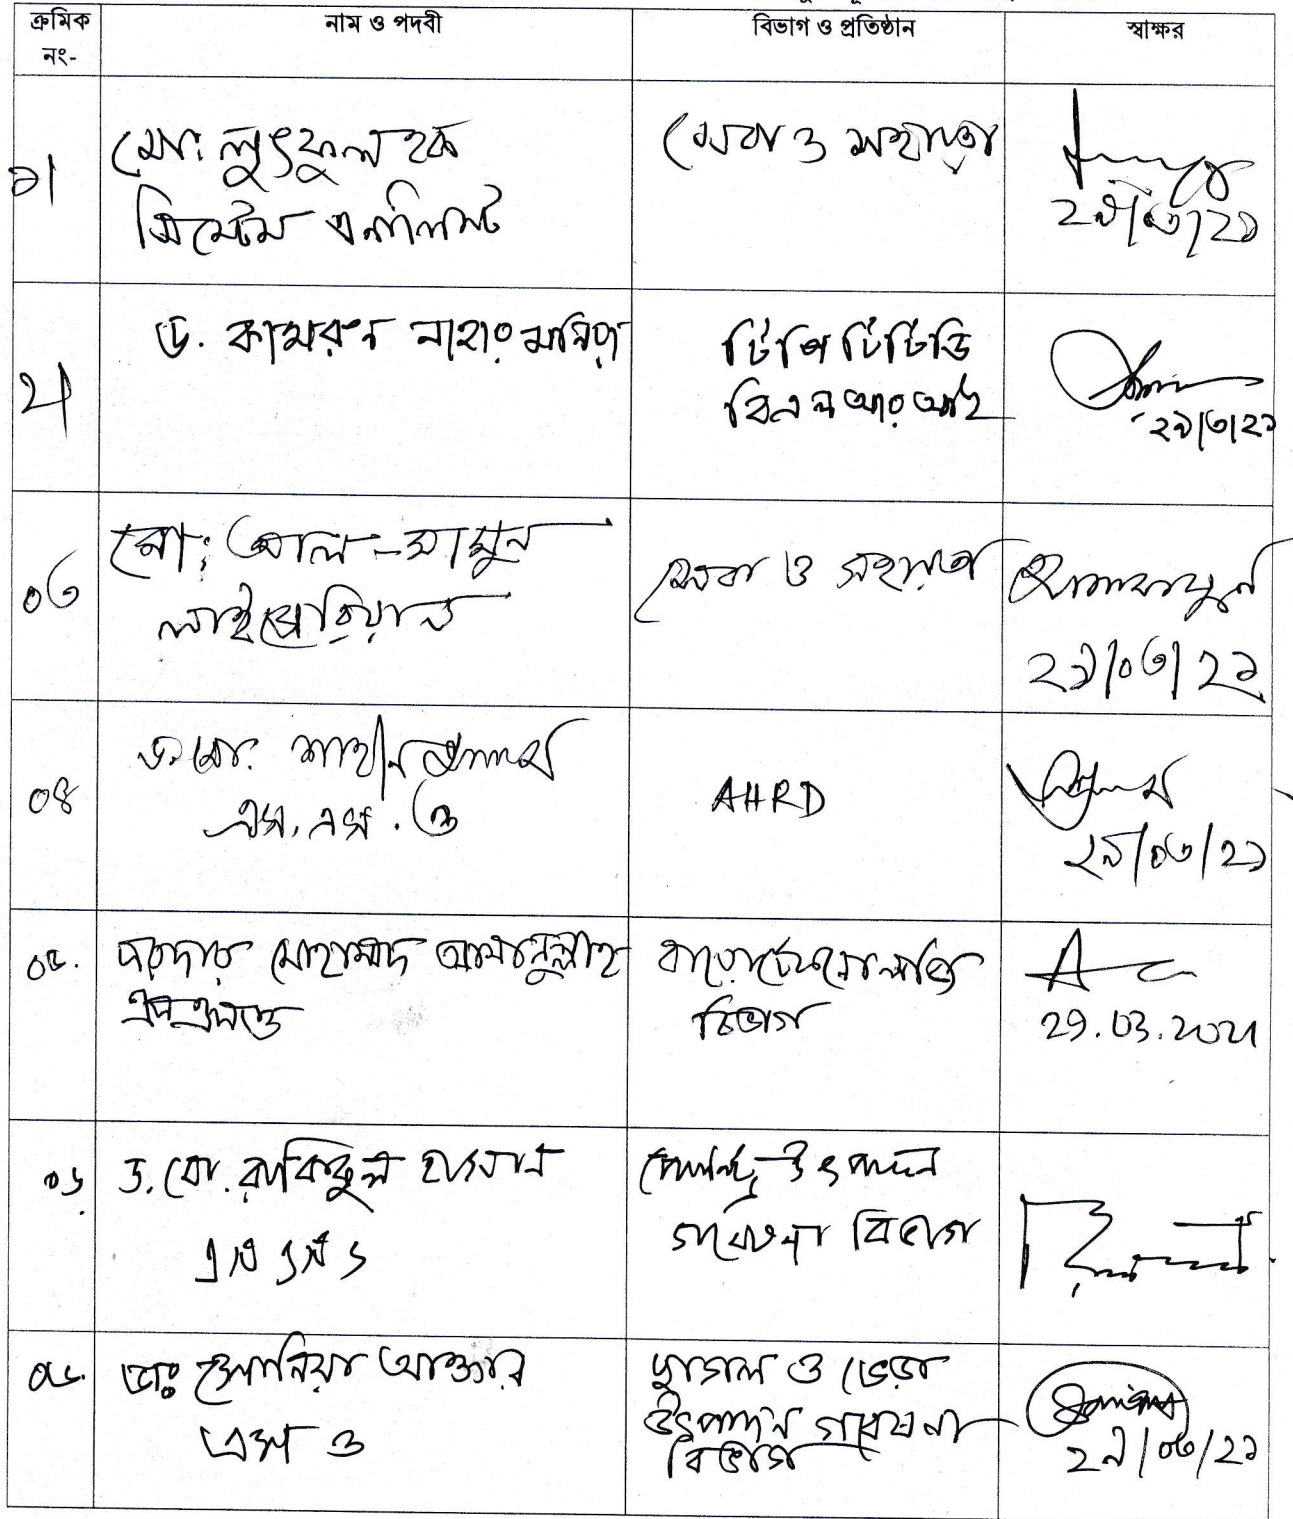 ক্রমিক নং-
নাম ও পদবী
বিভাগ ও প্রতিষ্ঠান
স্বাক্ষর
১।
মো: লুৎফুল হক
সিস্টেম এনালিস্ট
সেবা ও সহায়তা
২৯/০৩/২১
২।
ড. কামরুন নাহার মনিরা
টিপি টিটিডি
বিএলআরআই
২৯/৩/২১
০৩
মো: আল-মামুন
লাইব্রেরিয়ান
সেবা ও সহায়তা
আলমামুন
২৯/০৩/২১
০৪
ড. মো. শাহীন আলম
এস. এস. ও
AHRD
২৯/০৩/২১
০৫.
সরদার মোহাম্মদ আমানুল্লাহ
এসএসও
বায়োটেকনোলজি
বিভাগ
29.03.2021
০৬
ড. মো. রাকিবুল হাসান
এসএসও
পোল্ট্রি উৎপাদন
গবেষণা বিভাগ
০৭.
ডাঃ সোনিয়া আক্তার
এস ও
ছাগল ও ভেড়া
উৎপাদন গবেষনা
বিভাগ
২৯/০৩/২১